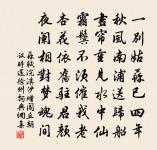 一别姑蘇已四年
秋風南浦送歸船
畫簾重見水中仙
霜鬢不須催我老
杏花依舊駐君顏
夜闌相對夢魂間
蘇軾浣溪沙贈閭丘朝
議時還徐州詞典網集